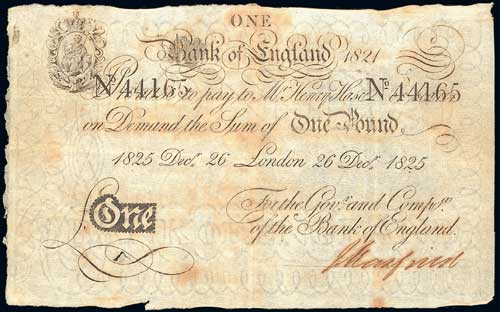 ONE
Bank of England 1821
Nº 44165 Nº 44165
to pay to Mr. Henry Hase
on Demand the Sum of One Pound
1825 Decr. 26 London 26 Decr. 1825
For the Govr. and Compa.
of the Bank of England.
One